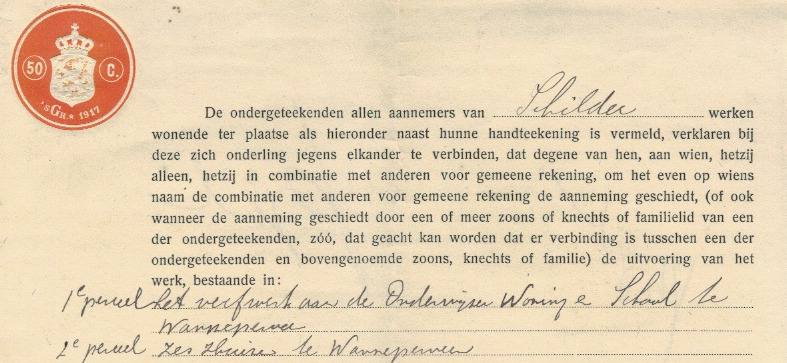 50 C.
'sGR. * 1917
De ondergeteekenden allen aannemers van Schilder werken
wonende ter plaatse als hieronder naast hunne handteekening is vermeld, verklaren bij
deze zich onderling jegens elkander te verbinden, dat degene van hen, aan wien, hetzij
alleen, hetzij in combinatie met anderen voor gemeene rekening, om het even op wiens
naam de combinatie met anderen voor gemeene rekening de aanneming geschiedt, (of ook
wanneer de aanneming geschiedt door een of meer zoons of knechts of familielid van een
der ondergeteekenden, zóó, dat geacht kan worden dat er verbinding is tusschen een der
ondergeteekenden en bovengenoemde zoons, knechts of familie) de uitvoering van het
werk, bestaande in:
1e perceel het verfwerk aan de Onderwijzer Woning e School te
Wanneperveen
2e perceel zes huizen te Wanneperveen